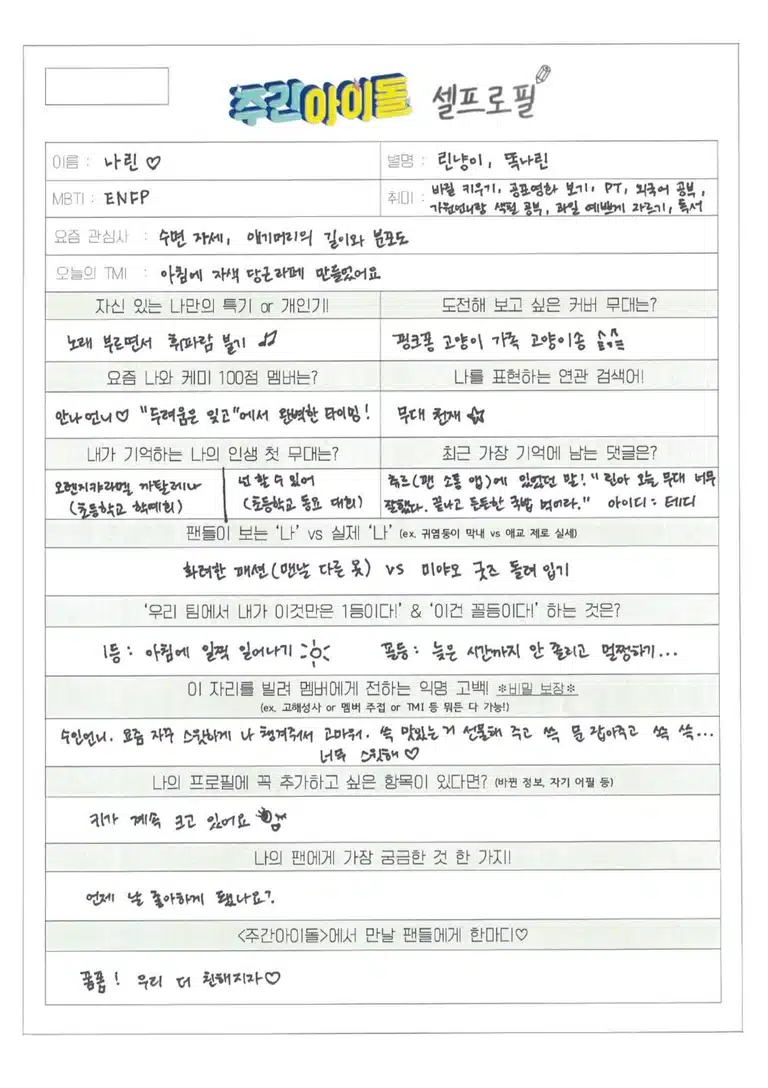 주간아이돌 셀프로필
이름 : 나린 ♡
별명 : 린냥이, 똑나린
MBTI : ENFP
취미 : 바질 키우기, 공포영화 보기, PT, 외국어 공부,
가원언니랑 색필 공부, 과일 예쁘게 자르기, 독서
요즘 관심사 : 수면 자세, 애기머리의 길이와 분포도
오늘의 TMI : 아침에 자색 당근라페 만들었어요
자신 있는 나만의 특기 or 개인기!
도전해 보고 싶은 커버 무대는?
노래 부르면서 휘파람 불기
핑크퐁 고양이 가족 고양이송
요즘 나와 케미 100점 멤버는?
나를 표현하는 연관 검색어!
안나언니♡ "두려움은 잊고"에서 완벽한 타이밍!
무대 천재
내가 기억하는 나의 인생 첫 무대는?
최근 가장 기억에 남는 댓글은?
오렌지캬라멜 까탈레나
(초등학교 학예회)
넌 할 수 있어
(초등학교 동요 대회)
쥬르(팬 소통 앱)에 있었던 말! "린아 오늘 무대 너무
잘했다. 끝나고 든든한 국밥 먹어라." 아이디 : 테디
팬들이 보는 '나' vs 실제 '나' (ex. 귀염둥이 막내 vs 애교 제로 실세)
화려한 패션(맨날 다른 옷) vs 미야오 굿즈 돌려 입기
'우리 팀에서 내가 이것만은 1등이다!' & '이건 꼴등이다!' 하는 것은?
1등 : 아침에 일찍 일어나기
꼴등 : 늦은 시간까지 안 졸리고 멀쩡하기...
이 자리를 빌려 멤버에게 전하는 익명 고백! ※비밀 보장※
(ex. 고해성사 or 멤버 주접 or TMI 등 뭐든 다 가능!)
수인언니. 요즘 자꾸 스윗하게 나 챙겨줘서 고마워. 쓱 맛있는거 선물해 주고 쓱 문 잡아주고 쓱 쓱...
너무 스윗해♡
나의 프로필에 꼭 추가하고 싶은 항목이 있다면? (바뀐 정보, 자기 어필 등)
키가 계속 크고 있어요
나의 팬에게 가장 궁금한 것 한 가지!
언제 날 좋아하게 됐나요?
<주간아이돌>에서 만날 팬들에게 한마디♡
꿈꿈! 우리 더 친해지자♡